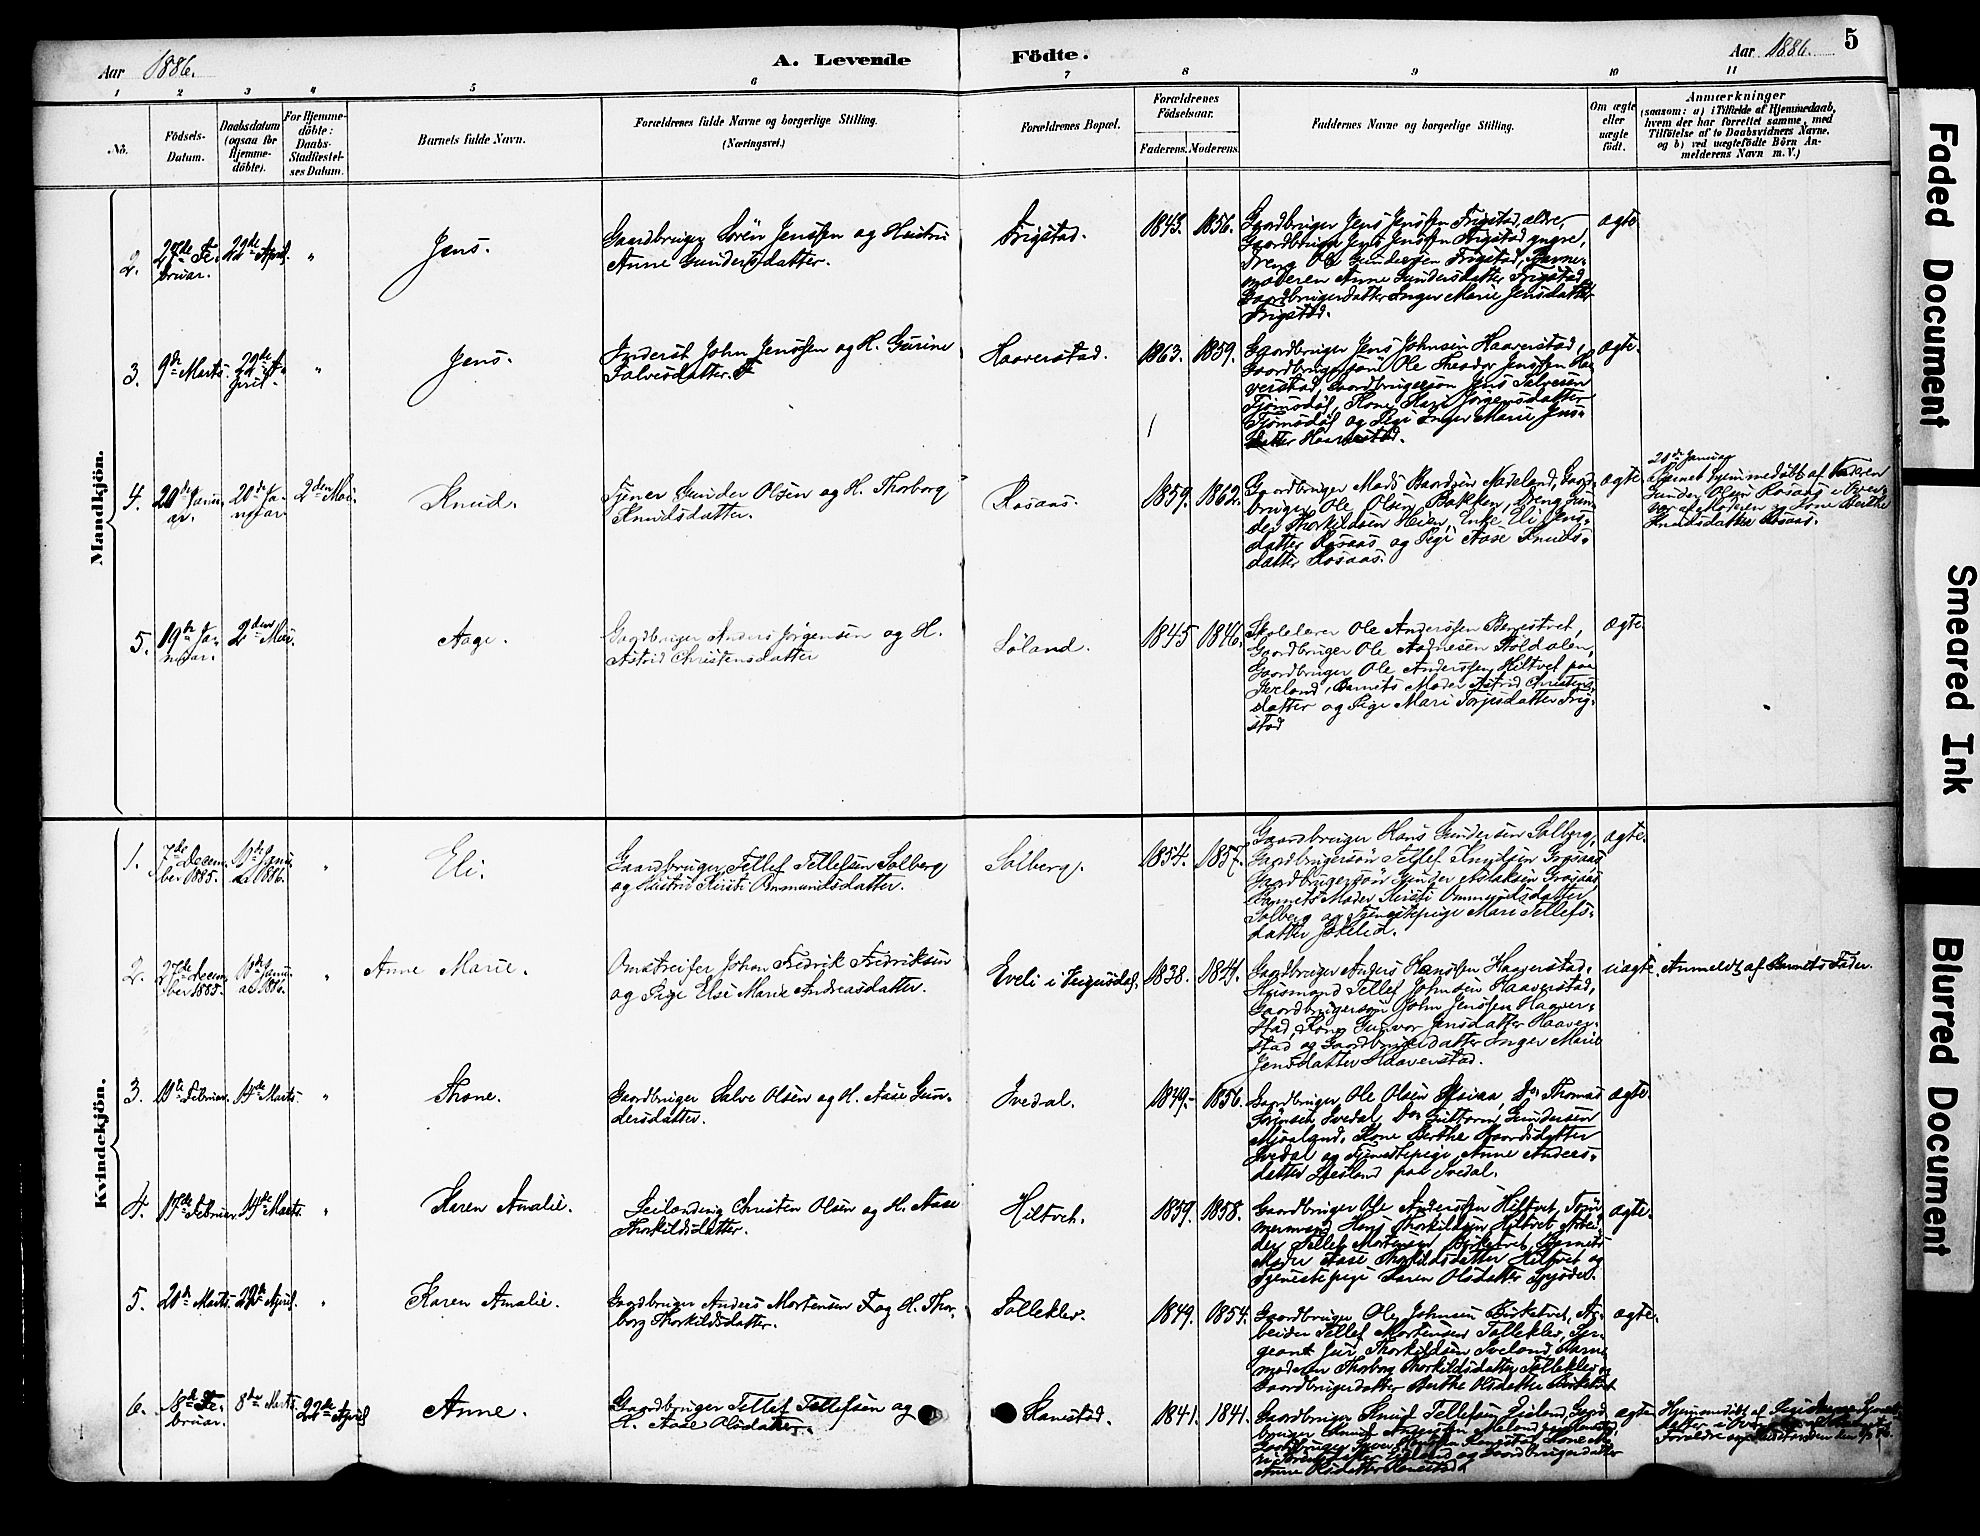 Aar 1886.
A. Levende
Födte.
Aar 1886.
5
1 2 3 4 5 6 7 8 9 10 11
No.
Födsels-
Datum.
Daabsdatum
(ogsaa for
Hjemme-
döbte).
For Hjemme-
döbte:
Daabs-
Stadfæstel-
ses Datum.
Barnets fulde Navn.
Forældrenes fulde Navne og borgerlige Stilling.
(Næringsvei.)
Forældrenes Bopæl.
Forældrenes
Födselsaar.
Faderens. Moderens.
Faddernes Navne og borgerlige Stilling.
Om ægte
eller
uægte
födt.
Anmærkninger
(saasom: a) i Tilfælde af Hjemmedaab,
hvem der har forrettet samme, med
Tilföielse af to Daabsvidners Navne,
og b) ved uægtefödte Börn An-
melderens Navn m. V.)
Mandkjön.
2.
27de Fe-
bruar.
22de April.
"
Jens.
Gaardbruger Sören Jenssen og Hustru
Anne Gundersdatter.
Frigstad.
1843. 1856.
Gaardbruger Jens Jenssen Frigstad ældre,
Gaardbruger Jens Jenssen Frigstad yngre,
Dreng Ole Gundersen Frigstad, Barne-
moderen Anne Gundersdatter Frigstad,
Gaardbrugerdatter Inger Marie Jensdatter
Frigstad.
ægte
3.
9de Marts.
22de A-
pril.
"
Jens.
Inderst John Jenssen og H. Gurine
Salvesdatter.
Haaverstad.
1863. 1859.
Gaardbruger Jens Johnsen Haaverstad,
Gaardbrugersön Ole Theodor Jenssen Haa-
verstad, Gaardbrugersön Jens Salvesen
Kone Kari Jörgensdatter
og Pige Inger Marie Jens-
datter Haaverstad.
ægte.
4.
20de Janu-
ar.
20de Ja-
nuar.
2den Mai.
Knud.
Tjener Gunder Olsen og H. Thorborg
Knudsdatter.
Rosaas.
1859. 1862.
Gaardbruger Mads Baardsen Nateland, Gaard-
bruger Ole Olsen Bakken, Dreng Gun-
der Thorkildsen Heien, Enke Eli Jens-
datter Rosaas og Pige Aase Knuds-
datter Rosaas.
ægte.
20de Januar
Barnet hjemmedöbt af Faderen
Gunder Olsen Rosaas i Over-
vær af Moderen og Kone Berthe
Knudsdatter Rosaas.
5.
19de Ja-
nuar.
2den Mai.
Aage.
Gaardbruger Anders Jörgensen og H.
Astrid Christensdatter
Söland.
1845 1846.
Skolelærer Ole Anderssen Birketvet,
Gaardbruger Ole Aagnesen
Gaardbruger Ole Anderssen Hiltvet paa
Iveland, Barnets Moder Astrid Christens-
datter og Pige Mari Torjusdatter Frig-
stad
ægte.
Kvindekjön.
1.
7de Decem-
ber 1885.
Janu-
ar 1886.
"
Eli.
Gaardbruger Tellef Tellefsen Solberg
og Hustru Kristi Ommundsdatter.
Solberg.
1854. 1857.
Gaardbruger Hans Gundersen Solberg,
Gaardbrugersön Tellef Knudsen Grosaas
Gaardbrugersön Gunder Aslaksen Grosaas,
Barnets Moder Kristi Ommundsdatter
Solberg og Tjenestepige Mari Tellefs-
datter Jokelid.
ægte.
2.
27de Decem-
ber 1885.
Janu-
ar 1886.
"
Anne Marie.
Omstreifer Johan Fredrik Fredriksen
og Pige Else Marie Andreasdatter.
Eveli i Vegusdal.
1838. 1841.
Gaardbruger Anders Hanssen Haaverstad,
Husmand Tellef Johnsen Haaverstad,
Gaardbrugersön John Jenssen Haaver-
stad, Kone Gunvor Jensdatter Haaver-
stad og Gaardbrugerdatter Inger Marie
Jensdatter Haaverstad.
uægte.
Anmeldt af Barnets Fader.
3.
Februar.
14de Marts.
"
Thone.
Gaardbruger Salve Olsen og H. Aase Gun-
dersdatter.
Ivedal.
1849. 1856.
Gaardbruger Ole Olsen Do Thomas
Sörensen Ivedal, Do Guttorm Gundersen
Mjaaland, Kone Berthe Baardsdatter
Ivedal og Tjenestepige Anne Anders-
datter paa Ivedal.
ægte.
4.
17de Februar
14de Marts.
"
Karen Amalie.
Christen Olsen og H. Aase
Thorkildsdatter.
Hiltvet.
1859. 1858.
Gaardbruger Ole Anderssen Hiltvet, Töm-
mermand Hans Thorkildsen Hiltvet, Arbei-
der Tellef Mortensen Birketvet, Barnets
Moder Aase Thorkildsdatter Hiltvet og
Tjenestepige Karen Olsdatter
ægte.
5.
20de Marts.
22de April.
"
Karen Amalie.
Gaardbruger Anders Mortensen og H. Thor-
borg Thorkildsdatter.
Tolleklev.
1849. 1854.
Gaardbruger Ole Johnsen Birketvet, Ar-
beider Tellef Mortensen Tolleklev, Ser-
geant Thorkildsen Iveland, Barne-
moderen Thorborg Thorkildsdatter Tolleklev og
Gaardbrugerdatter Berthe Olsdatter Birketvet
ægte.
6.
18de Fe-
bruar.
8de Marts.
22de April
Anne.
Gaardbruger Tellef Tellefsen og
H. Aase Olsdatter.
Kanestad.
1841. 1841.
Gaardbruger Knud Tellefsen Gaard-
bruger
Gaardbruger
Anne Olsdatter Kanestad.
ægte
Hjemmedöbt af
Faded Document
Smeared Ink
Blurred Document